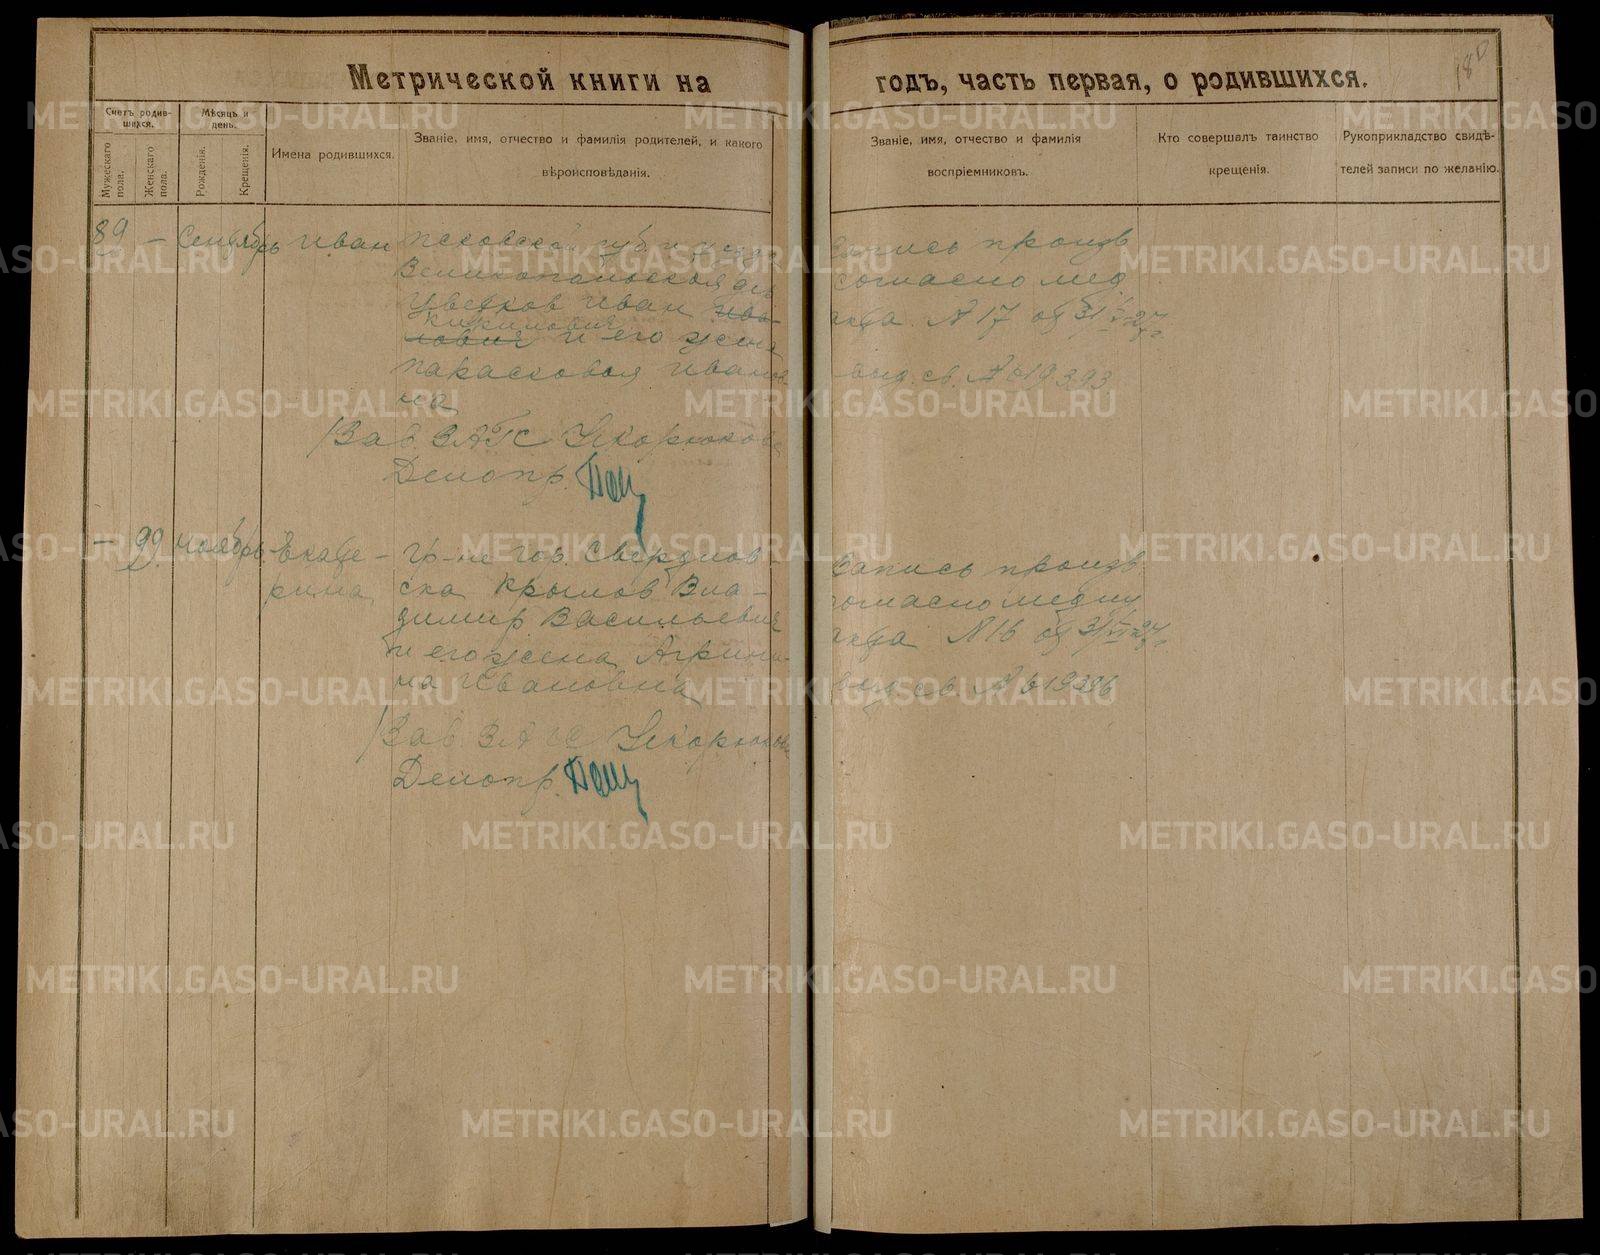 Метрической книги на годъ, часть первая, о родившихся.
180
Счетъ родив-
шихся.
Мужескаго пола.
Женскаго пола.
Мѣсяцъ и день.
Рожденія.
Крещенія.
Имена родившихся.
Званіе, имя, отчество и фамилія родителей, и какого
вѣроисповѣданія.
Званіе, имя, отчество и фамилія
воспріемниковъ.
Кто совершалъ таинство
крещенія.
Рукоприкладство свидѣ-
телей записи по желанію.
89 — Сентябрь Иван Псковской губ. и уезда
Великопольская
Цветков Иван
Кирилович
и его жена
Парасковья Иванов
на
Зав ЗАГС Искорюкова
Делопр.
Запись произв
согласно мед
акта № 17 от 31
выд. св. № 619393
— 99. Ноябрь Екате-
рина
гр-не гор. Свердлов-
ска Крылов Вла-
димир Васильевич
и его жена Агрипи-
на Ивановна
Зав ЗАГС Искорюкова
Делопр.
Запись произв
согласно медиц
акта № 16 от 31
выд св. № 619396
METRIKI.GASO-URAL.RU